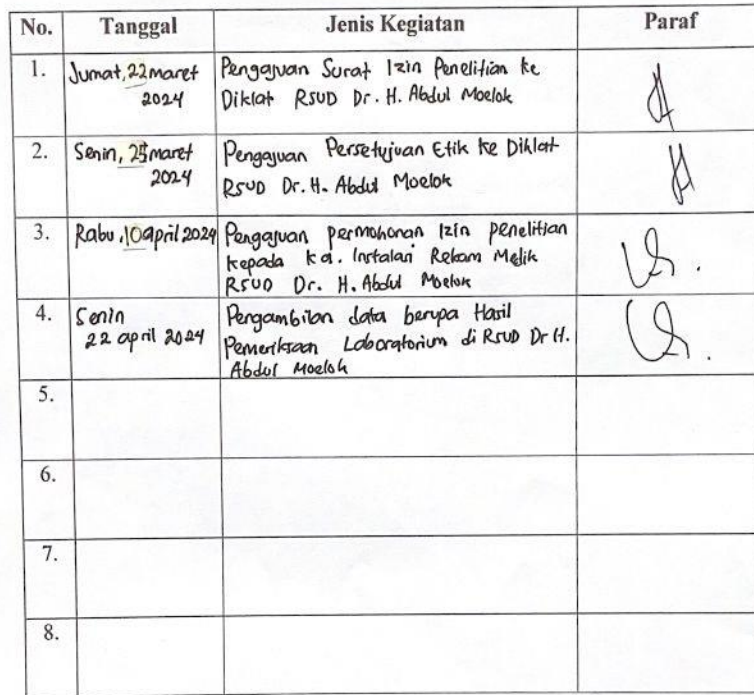 No. Tanggal Jenis Kegiatan Paraf
1. Jumat, 22 maret Pengajuan Surat Izin Penelitian ke
2024 Diklat RSUD Dr. H. Abdul Moelok
2. Senin, 25 maret Pengajuan Persetujuan Etik ke Diklat
2024 RSUD Dr. H. Abdul Moelok
3. Rabu, 10 april 2024 Pengajuan permohonan Izin penelitian
kepada ka. Instalasi Rekam Medik
RSUD Dr. H. Abdul Moelok
4. Senin Pengambilan data berupa Hasil
22 april 2024 Pemeriksaan Laboratorium di RSUD Dr H.
Abdul Moelok
5.
6.
7.
8.